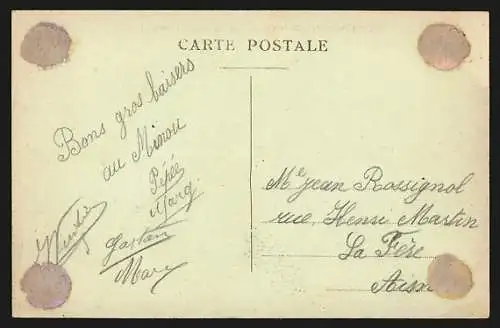 CARTE POSTALE
Bons gros baisers
au Minou
Pépée
Marg
Gaston
Mary
Mr Jean Rossignol
rue Henri Martin
La Fère
Aisne